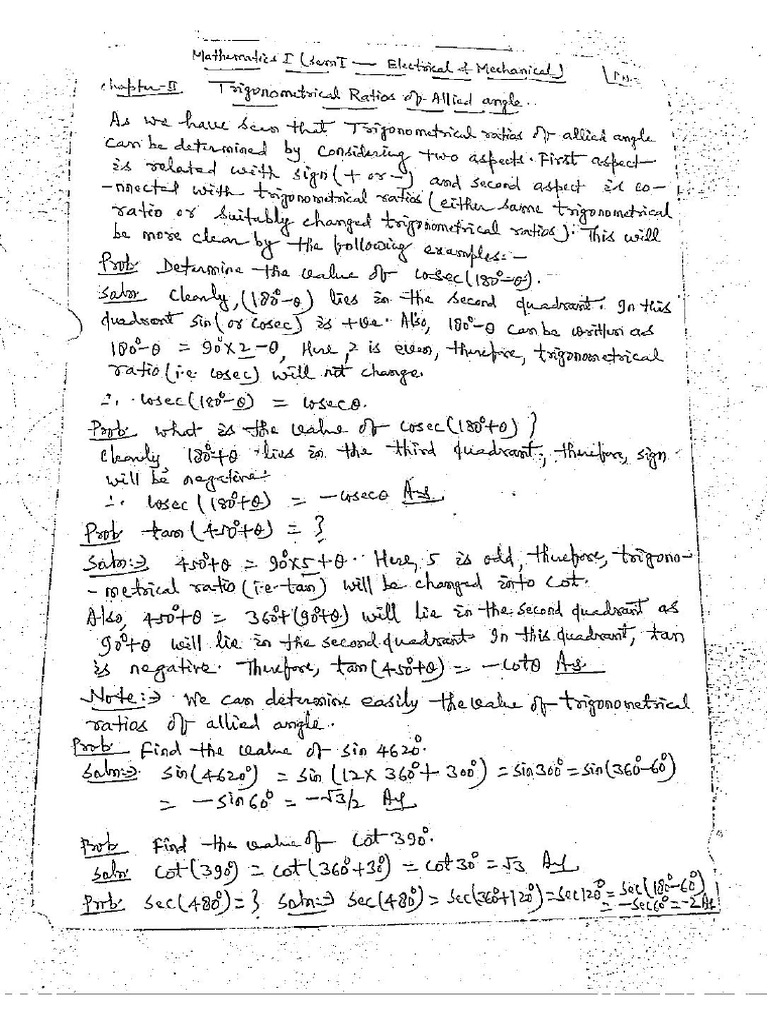 Mathematics I (Sem I — Electrical & Mechanical)
Chapter-II Trigonometrical Ratios of Allied angle..
As we have seen that Trigonometrical ratios of allied angle
can be determined by considering two aspects. First aspect
is related with sign (+ or -) and second aspect is co-
-nnected with trigonometrical ratios (either same trigonometrical
ratio or suitably changed trigonometrical ratios). This will
be more clear by the following examples:-
Prob: Determine the value of cosec(180°-θ).
Soln: Clearly, (180°-θ) lies in the second quadrant. In this
quadrant sin(or cosec) is +ve. Also, 180°-θ can be written as
180°-θ = 90°×2-θ, Here, 2 is even, therefore, trigonometrical
ratio (i.e. cosec) will not change.
∴ cosec(180°-θ) = cosecθ.
Prob: What is the value of cosec(180°+θ)?
Clearly, 180°+θ lies in the third quadrant, therefore, sign
will be negative:
∴ cosec(180°+θ) = -cosecθ Ans
Prob: tan(450°+θ) = ?
Soln:⇒ 450°+θ = 90°×5+θ. Here, 5 is odd, therefore, trigono-
-metrical ratio (i.e. tan) will be changed into cot.
Also, 450°+θ = 360°+(90°+θ) will lie in the second quadrant as
90°+θ will lie in the second quadrant. In this quadrant, tan
is negative. Therefore, tan(450°+θ) = -cotθ Ans
Note:⇒ We can determine easily the value of trigonometrical
ratios of allied angle.
Prob: Find the value of sin 4620°.
Soln:⇒ sin(4620°) = sin(12×360°+300°) = sin300° = sin(360°-60°)
= -sin60° = -√3/2 Ans
Prob: Find the value of cot 390°.
Soln: cot(390°) = cot(360°+30°) = cot30° = √3 Ans
Prob: sec(480°) = ? Soln:⇒ sec(480°) = sec(360°+120°) = sec120° = sec(180°-60°)
= -sec60° = -2 Ans